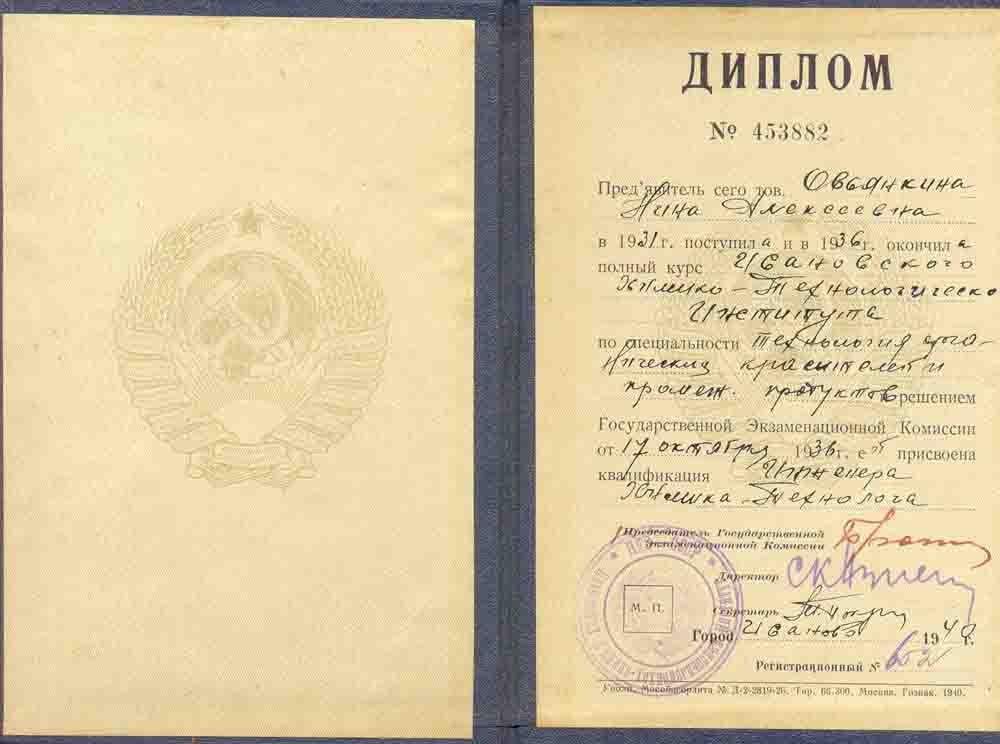 ДИПЛОМ
№ 453882
Пред'явитель сего тов. Овьянкина
Нина Алексеевна
в 1931г. поступила и в 1936г. окончила
полный курс Ивановского
Химико-Технологическо
Института
по специальности Технология орга-
нических красителей и
промеж. продуктов решением
Государственной Экзаменационной Комиссии
от 17 октября 1936г. ей присвоена
квалификация Инженера
Химика-Технолога
Председатель Государственной
Экзаменационной Комиссии
Директор
М. П.
Секретарь
Город Иваново 1940 г.
Регистрационный №
Уполн. Мособлгорлита № Д-2-2819-26. Тир. 66.300. Москва. Гознак. 1940.